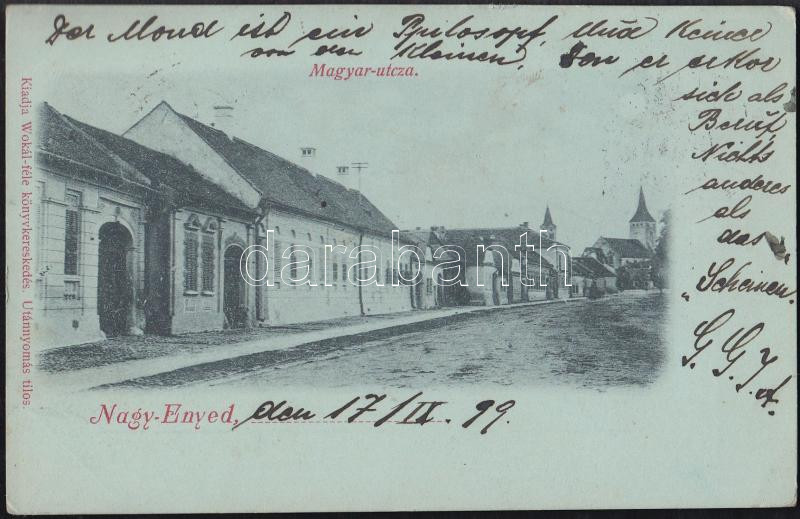 Der Mond ist ein Philosoph, Und Keiner
von den Kleinen, Den er erkor
Magyar-utcza.
sich als
Beruf,
Nichts
anderes
als
das
"Scheinen."
Kiadja Wokál-féle könyvkereskedés. Utánnyomás tilos.
darabanth
Nagy-Enyed, den 17/IX. 99.